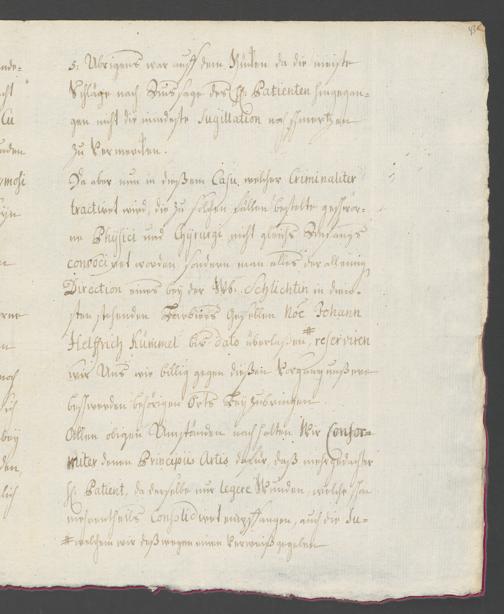 5. Ubrigens war auff dem Rucken da die meiste
Schläge nach Aussage des H. Patienten hingegan-
gen nicht die mindeste Sugillation noch schmertzen
zu vermercken.
Da aber nun in diesem Casu, welcher Criminaliter
tractiret wird, die zu solchen fällen bestelte geschwor-
ne Physici und Chyrurgi nicht gleich Anfangs
convociret worden sondern man alles der alleinig
Direction eines bey der Wb. Schlichtin in dien-
sten stehenden Barbiers Gesellen Noe Johann
Helffrich Kümmel bis dato überlassen # reserviren
wir Uns wie billig gegen diesen Vorgang unsere
beschwerden behörigen Orts beyzubringen
Allen obigen Umständen nach halten Wir Confor-
miter denen Principiis Artis dafür, daß mehrgedachter
H. Patient, da derselbe nur legere Wunden, welche schon
mehrentheils Consolidiret empfangen, auch die Su-
# welchem wir deßwegen einen Verweiß gegeben